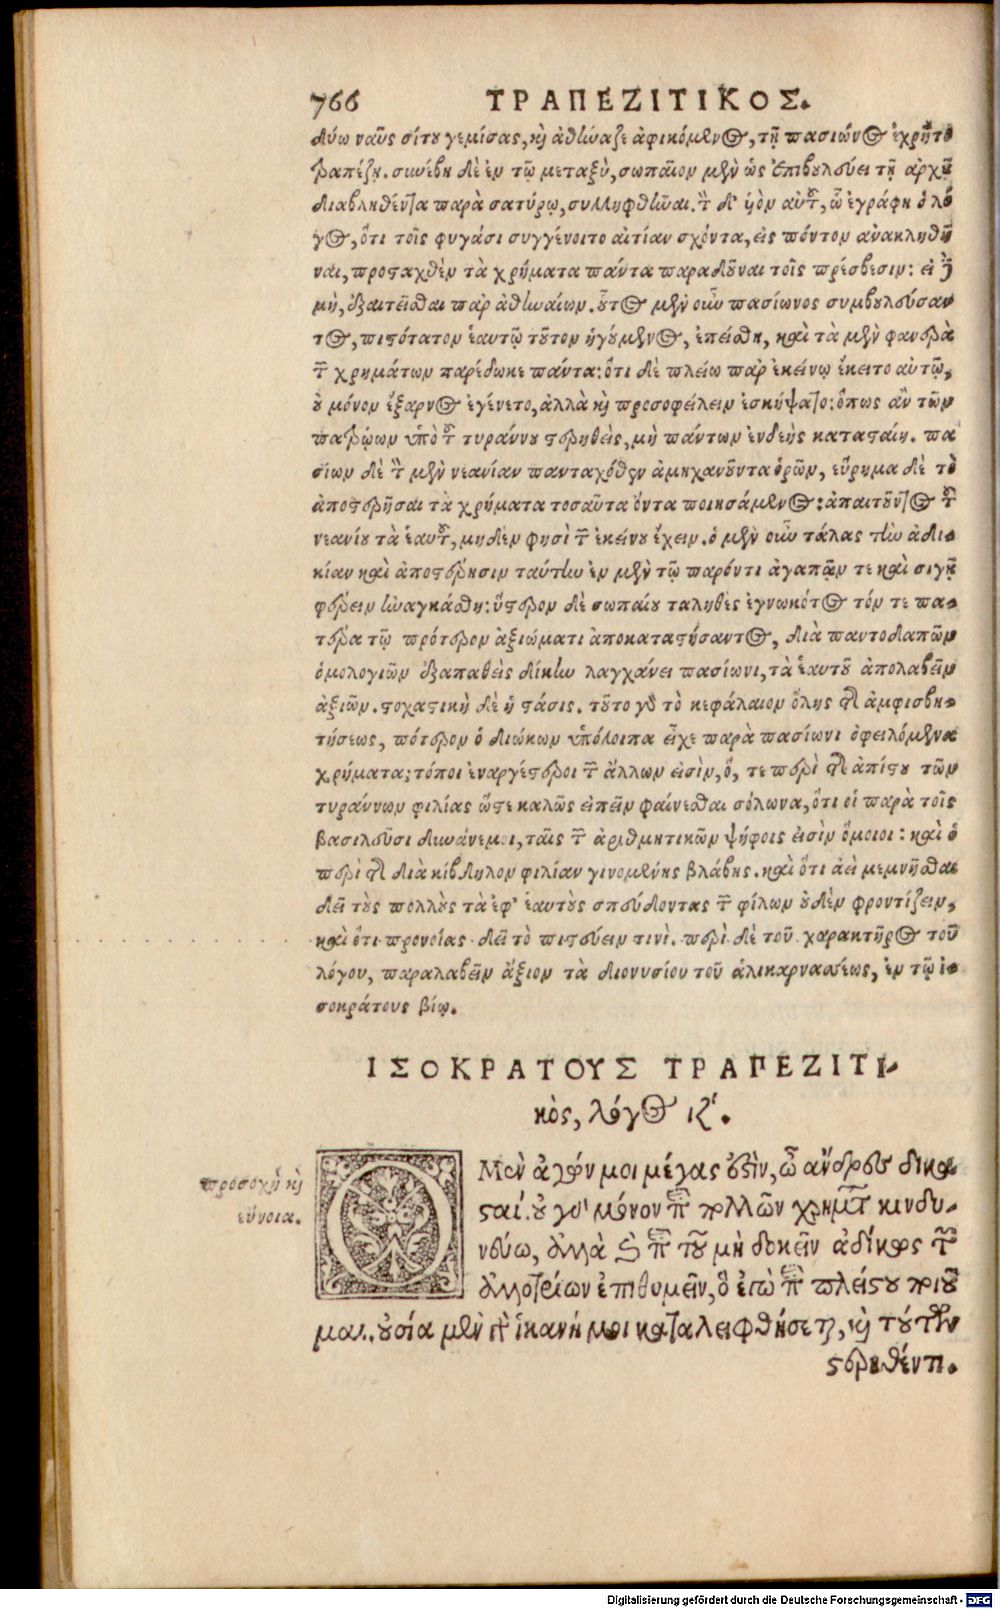 766 ΤΡΑΠΕΖΙΤΙΚΟΣ.
δύω ναῦς σίτου γεμίσας, καὶ ἀθήναζε ἀφικόμενος, τῇ πασίωνος ἐχρῆτο
τραπέζῃ. συνέβη δὲ ἐν τῷ μεταξὺ, σωπαῖον μὲν ὡς ἐπιβουλεύει τῇ ἀρχῇ
διαβληθέντα παρὰ σατύρῳ, συλληφθῆναι. τὸν δ' υἱὸν αὐτοῦ, ᾧ ἐγράφη ὁ λό
γος, ὅτι τοῖς φυγάσι συγγένοιτο αἰτίαν σχόντα, εἰς πόντον ἀνακληθῆ
ναι, προσταχθὲν τὰ χρήματα πάντα παραδοῦναι τοῖς πρέσβεσιν: εἰ δὲ
μὴ, ἐξαιτεῖσθαι παρ ἀθηναίων. οὗτος μὲν οὖν πασίωνος συμβουλεύσαν
τος, πιστότατον ἑαυτῷ τοῦτον ἡγούμενος, ἐπείσθη, καὶ τὰ μὲν φανερὰ
τῶν χρημάτων παρέδωκε πάντα: ὅτι δὲ πλείω παρ ἐκείνῳ ἔκειτο αὐτῷ,
οὐ μόνον ἔξαρνος ἐγένετο, ἀλλὰ καὶ προσοφείλειν ἐσκήψατο: ὅπως ἂν τῶν
πατρῴων ὑπὸ τοῦ τυράννου στερηθεὶς, μὴ πάντων ἐνδεὴς κατασταίη. πα
σίων δὲ τὸν μὲν νεανίαν πανταχόθεν ἀμηχανοῦντα ὁρῶν, εὕρημα δὲ τὸ
ἀποστερῆσαι τὰ χρήματα τοσαῦτα ὄντα ποιησάμενος: ἀπαιτοῦντος τοῦ
νεανίου τὰ ἑαυτοῦ, μηδὲν φησὶ τῶν ἐκείνου ἔχειν. ὁ μὲν οὖν τάλας τὴν ἀδι-
κίαν καὶ ἀποστέρησιν ταύτην ἐν μὲν τῷ παρόντι ἀγαπᾷν τε καὶ σιγῇ
φέρειν ἠναγκάσθη: ὕστερον δὲ σωπαίου ταληθὲς ἐγνωκότος τόν τε πα-
τέρα τῷ πρότερον ἀξιώματι ἀποκαταστήσαντος, διὰ παντοδαπῶν
ὁμολογιῶν ἐξαπαθεὶς δίκην λαγχάνει πασίωνι, τὰ ἑαυτοῦ ἀπολαβεῖν
ἀξιῶν. στοχαστικὴ δὲ ἡ στάσις. τοῦτο γὰρ τὸ κεφάλαιον ὅλης τῆς ἀμφισβη-
τήσεως, πότερον ὁ διώκων ὑπόλοιπα εἶχε παρὰ πασίωνι ὀφειλόμενα
χρήματα; τόποι ἐναργέστεροι τῶν ἄλλων εἰσὶν, ὅ, τε περὶ τῆς ἀπίστου τῶν
τυράννων φιλίας ὥστε καλῶς εἰπεῖν φαίνεσθαι σόλωνα, ὅτι οἱ παρὰ τοῖς
βασιλεῦσι δυνάνεμοι, ταῖς τῶν ἀριθμητικῶν ψήφοις εἰσὶν ὅμοιοι: καὶ ὁ
περὶ τῆς διὰ κίβδηλον φιλίαν γινομένης βλάβης. καὶ ὅτι ἀεὶ μεμνῆσθαι
δεῖ τοὺς πολλοὺς τὰ ἐφ' ἑαυτοὺς σπεύδοντας τῶν φίλων οὐδὲν φροντίζειν,
καὶ ὅτι προνοίας δεῖ τὸ πιστεύειν τινὶ. περὶ δὲ τοῦ χαρακτῆρος τοῦ
λόγου, παραλαβεῖν ἄξιον τὰ διονυσίου τοῦ ἁλικαρνασέως, ἐν τῷ ἰ-
σοκράτους βίῳ.
ΙΣΟΚΡΑΤΟΥΣ ΤΡΑΠΕΖΙΤΙ-
κὸς, λόγος ιζ΄.
προσοχὴ καὶ
εὔνοια.
Ο Μὲν ἀγών μοι μέγας ἐστὶν, ὦ ἄνδρες δικα
σταί. οὐ γὰρ μόνον περὶ πολλῶν χρημάτων κινδυ-
νεύω, ἀλλὰ καὶ περὶ τοῦ μὴ δοκεῖν ἀδίκως τῶν
ἀλλοτρίων ἐπιθυμεῖν, ὃ ἐγὼ περὶ πλείστου ποιοῦ
μαι. οὐσία μὲν γὰρ ἱκανή μοι καταλειφθήσεται, καὶ τούτων
στερηθέντι.
Digitalisierung gefördert durch die Deutsche Forschungsgemeinschaft - DFG